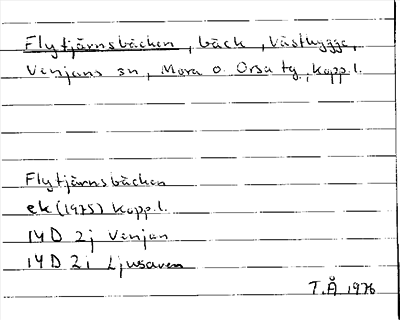 Flytjärnsbäcken, bäck, Västbygge,
Venjans sn, Mora o. Orsa tg, Kopp.l.
Flytjärnsbäcken
ek (1975) Kopp.l.
14D 2j Venjan
14D 2i Ljusaren
T.Å 1976